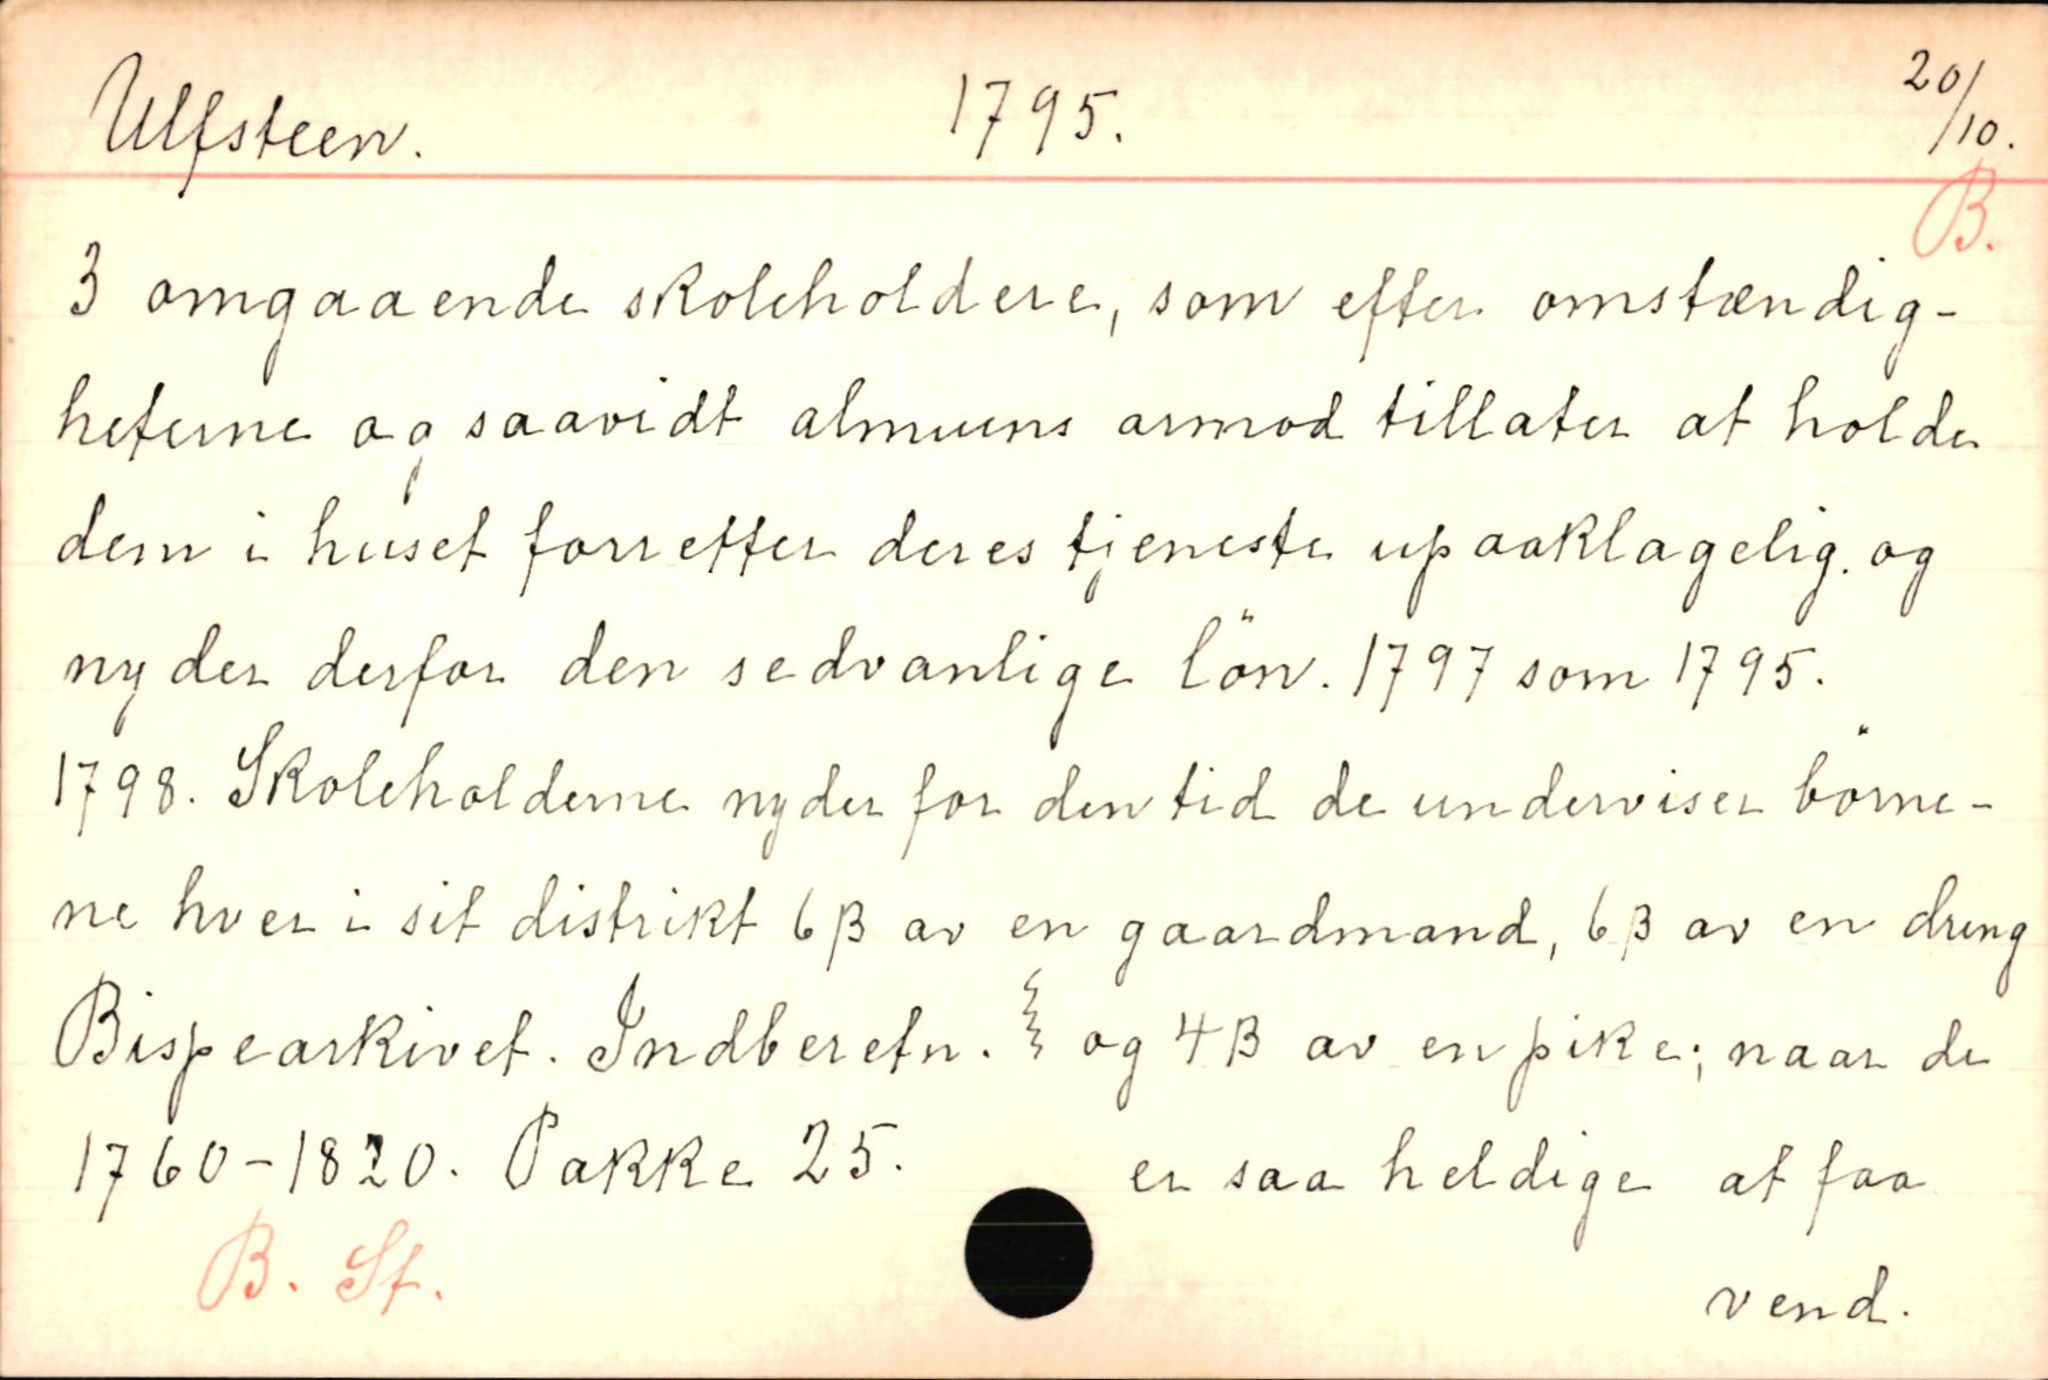 Ulfsteen. 1795. 20/10.
B.
3 omgaaende skoleholdere, som efter omstændig-
heterne og saavidt almuens armod tillater at holde
dem i huset forretter deres tjeneste upaaklagelig. og
nyder derfor den sedvanlige lön. 1797 som 1795.
1798. Skoleholderne nyder for den tid de underviser börne-
ne hver i sit distrikt 6 β av en gaardmand, 6 β av en dreng
Bispearkivet. Indberetn. og 4 β av en pike; naar de
1760-1820. Pakke 25. er saa heldige at faa
B. St.
vend.